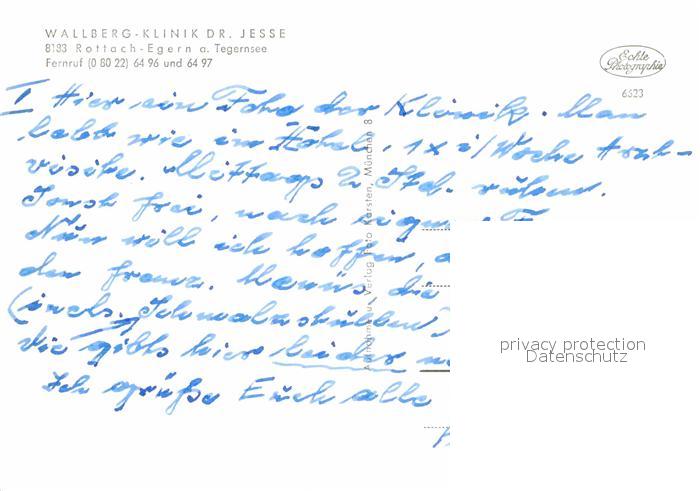 WALLBERG-KLINIK DR. JESSE
8183 Rottach-Egern a. Tegernsee
Fernruf (0 80 22) 64 96 und 64 97
Echte Photographie
6523
I Hier ein Foto der Klinik. Man
lebt wie im Hotel. 1x i/Woche Arzt-
visite. Mittags 2 Std. ruhen.
Sonst frei, nach eign
Nun will ich hoffen,
den franz. Menüs, die
(incl. Schmalzstullen),
die gibts hier leider n
Ich grüße Euch alle
Aufnahme u. Verlag Foto Karsten, München 8
privacy protection
Datenschutz